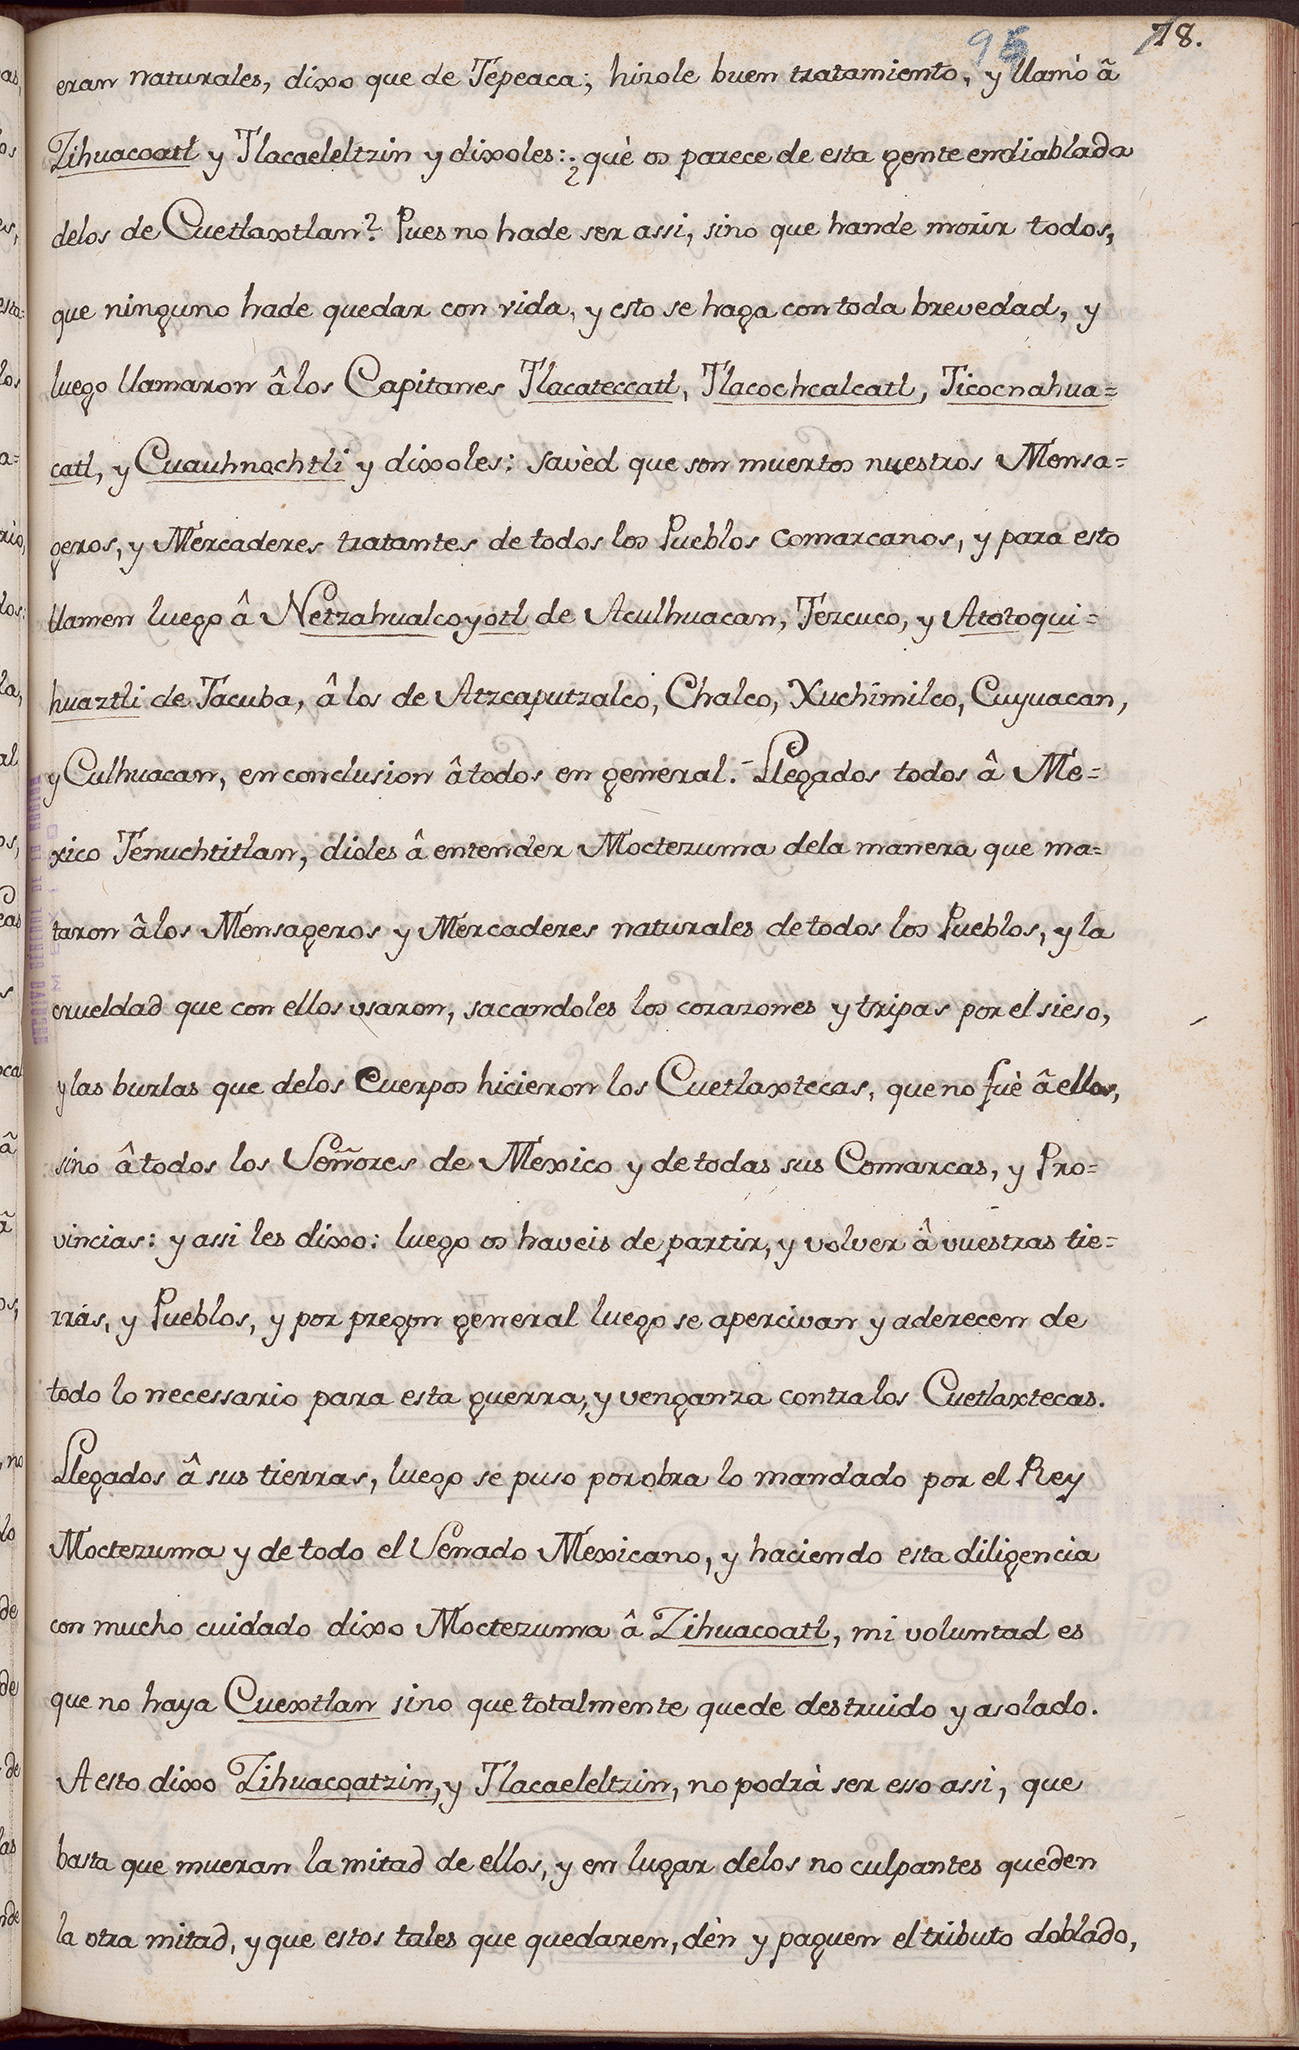 95 78.
eran naturales, dixo que de Tepeaca; hizole buen tratamiento, y llamò â
Zihuacoatl y Tlacaeleltzin y dixoles: ¿què os parece de esta gente endiablada
delos de Cuetlaxtlan? Pues no hade ser assi, sino que hande morir todos,
que ninguno hade quedar con vida, y esto se haga con toda brevedad, y
luego llamaron â los Capitanes Tlacateccatl, Tlacochcalcatl, Ticocnahua=
catl, y Cuauhnochtli y dixoles: savèd que son muertos nuestros Mensa=
geros, y Mercaderes tratantes de todos los Pueblos comarcanos, y para esto
llamen luego â Netzahualcoyotl de Aculhuacan, Tezcuco, y Atotoqui=
huaztli de Tacuba, â los de Atzcaputzalco, Chalco, Xuchimilco, Cuyuacan,
y Culhuacan, en conclusion â todos en general. Llegados todos â Me=
xico Tenuchtitlan, dioles â entender Moctezuma dela manera que ma=
taron âlos Mensageros y Mercaderes naturales de todos los Pueblos, y la
crueldad que con ellos usaron, sacandoles los corazones y tripas por el sieso,
y las burlas que delos Cuerpos hicieron los Cuetlaxtecas, que no fuè â ellos,
sino â todos los Señores de Mexico y de todas sus Comarcas, y Pro=
vincias: y assi les dixo: luego os haveis de partir, y volver â vuestras tie=
rras, y Pueblos, y por pregon general luego se apercivan y aderecen de
todo lo necessario para esta guerra, y venganza contra los Cuetlaxtecas.
Llegados â sus tierras, luego se puso por obra lo mandado por el Rey
Moctezuma y de todo el Senado Mexicano, y haciendo esta diligencia
con mucho cuidado dixo Moctezuma â Zihuacoatl, mi voluntad es
que no haya Cuextlan sino que totalmente quede destruido y asolado.
A esto dixo Zihuacoatzin, y Tlacaeleltzin, no podrà ser esso assi, que
basta que mueran la mitad de ellos, y en lugar delos no culpantes queden
la otra mitad, y que estos tales que quedaren, dèn y paguen el tributo doblado,